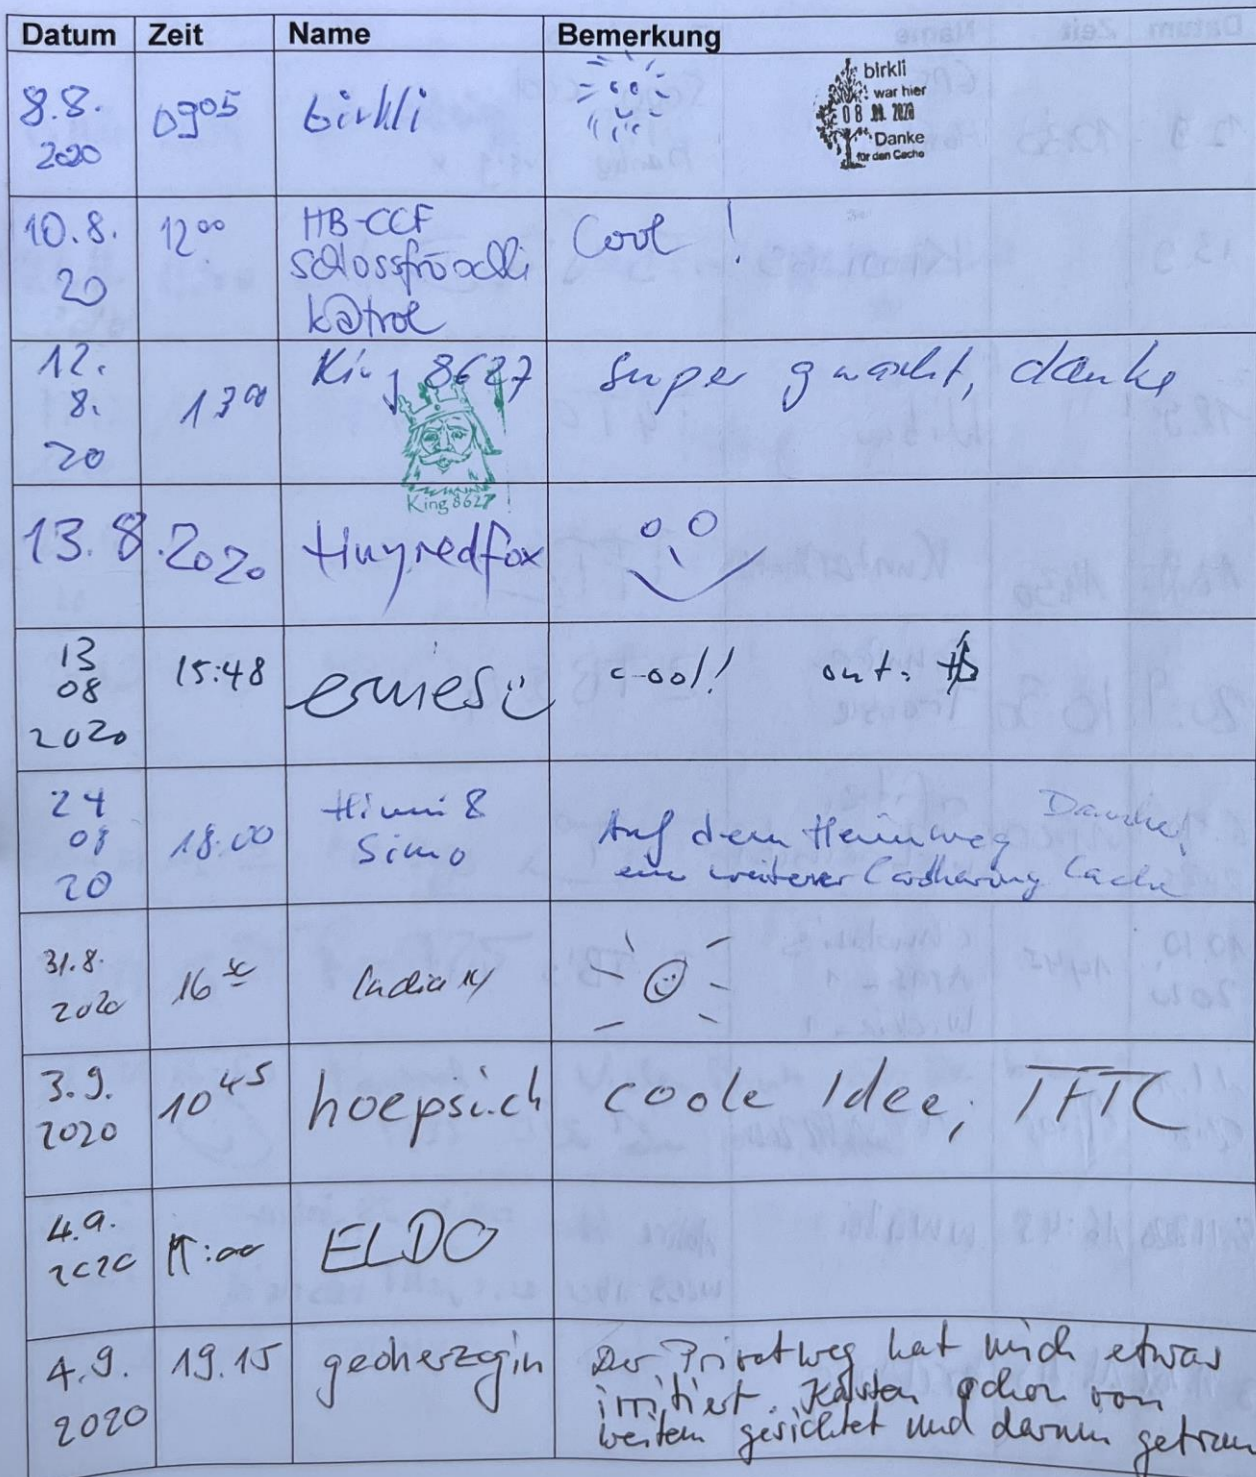 Datum Zeit Name Bemerkung
8.8. 2020 09⁰⁵ birkli
birkli
war hier
08 2020
Danke
für den Cache
10.8. 20 12⁰⁰ HB-CCF Cool!
schlossfröschli
k@trol
12. 8. 20 13⁰⁰ King 8627 super gmacht, danke
King 8627
13.8.2020 tinyredfox
13 08 2020 15:48 cool! out: TB
24 08 20 18.00 Himmi & Simo
Auf dem Heimweg Danke!
ein weiterer Cache
31.8. 2020 16
3.9. 2020 10⁴⁵ hoepsi.ch coole Idee, TFTC
4.9. 2020 ELDO
4.9. 2020 19.15 geoherzogin Der Privatweg hat mich etwas
irritiert. Kasten schon von
weitem gesichtet und darum